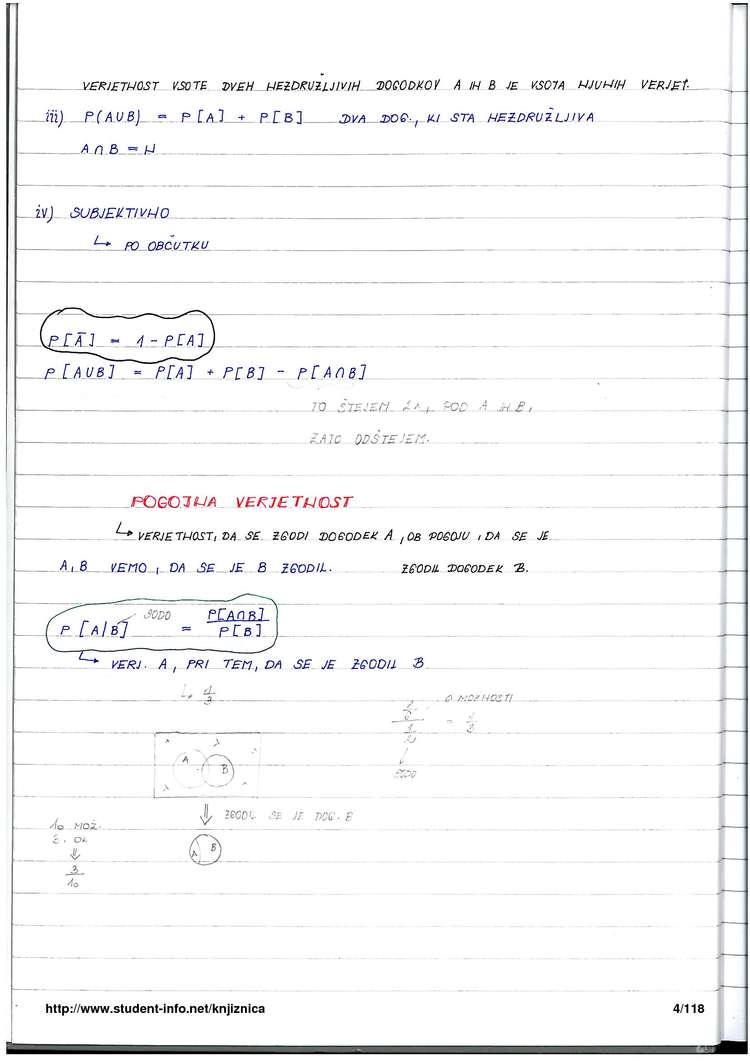 VERJETNOST VSOTE DVEH NEZDRUŽLJIVIH DOGODKOV A IN B JE VSOTA NJUNIH VERJET.
iii) P(A∪B) = P[A] + P[B] DVA DOG., KI STA NEZDRUŽLJIVA
A∩B = N
iv) SUBJEKTIVNO
↳ PO OBČUTKU
P[Ā] = 1 - P[A]
P[A∪B] = P[A] + P[B] - P[A∩B]
TO ŠTEJEM 2x, POD A IN B,
ZATO ODŠTEJEM.
POGOJNA VERJETNOST
↳ VERJETNOST, DA SE ZGODI DOGODEK A, OB POGOJU, DA SE JE
A, B VEMO, DA SE JE B ZGODIL. ZGODIL DOGODEK B.
P[A|B] SODO = P[A∩B] / P[B]
↳ VERJ. A, PRI TEM, DA SE JE ZGODIL B
↳ 1/3
MOŽNOSTI
= 1/3
SODO
A B
⇓ ZGODIL SE JE DOG. B
10 MOŽ.
3. OK
A B
⇓
3/10
http://www.student-info.net/knjiznica 4/118